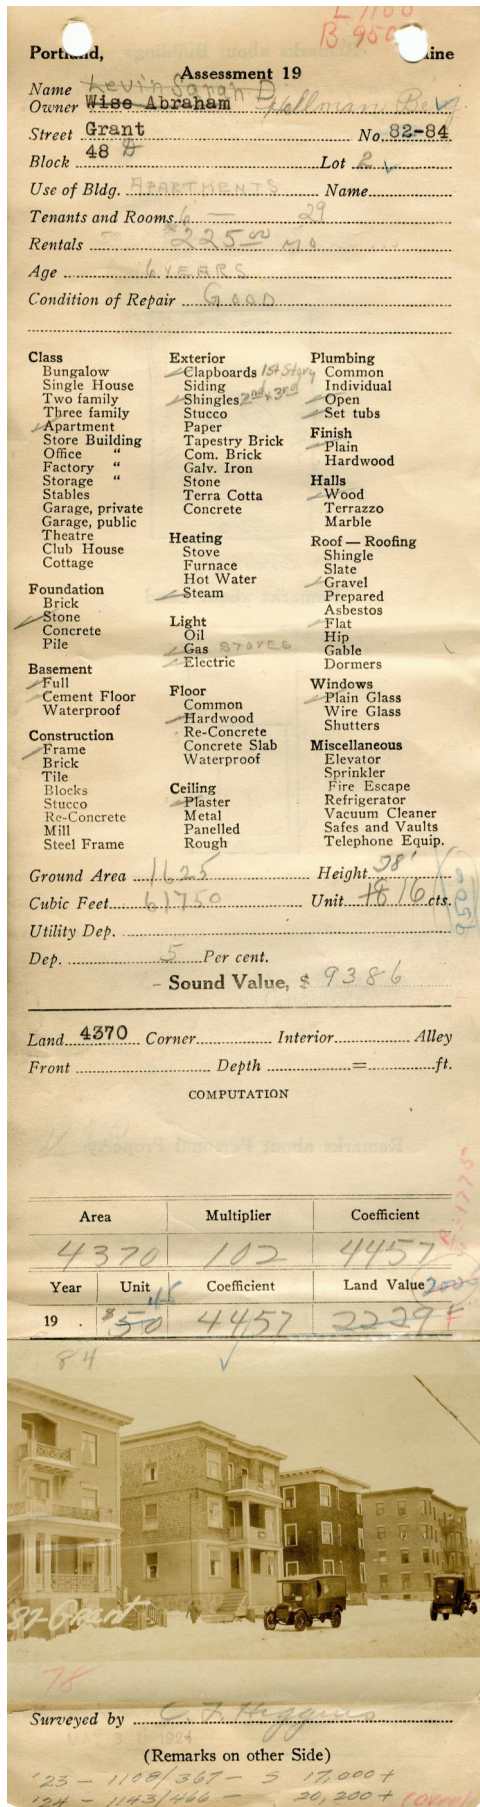 L 1100
B. 950
Portland, Maine
Assessment 19
Name Levin Sarah D
Owner Wise Abraham Hellman Benj
Street Grant No. 82-84
Block 48 D Lot 2
Use of Bldg. APARTMENTS Name
Tenants and Rooms 6 — 29
Rentals $225.00 MO
Age 6 YEARS
Condition of Repair GOOD
Class
Bungalow
Single House
Two family
Three family
Apartment
Store Building
Office "
Factory "
Storage "
Stables
Garage, private
Garage, public
Theatre
Club House
Cottage
Foundation
Brick
Stone
Concrete
Pile
Basement
Full
Cement Floor
Waterproof
Construction
Frame
Brick
Tile
Blocks
Stucco
Re-Concrete
Mill
Steel Frame
Exterior
Clapboards 1st Story
Siding
Shingles 2nd & 3rd
Stucco
Paper
Tapestry Brick
Com. Brick
Galv. Iron
Stone
Terra Cotta
Concrete
Heating
Stove
Furnace
Hot Water
Steam
Light
Oil
Gas STOVES
Electric
Floor
Common
Hardwood
Re-Concrete
Concrete Slab
Waterproof
Ceiling
Plaster
Metal
Panelled
Rough
Plumbing
Common
Individual
Open
Set tubs
Finish
Plain
Hardwood
Halls
Wood
Terrazzo
Marble
Roof — Roofing
Shingle
Slate
Gravel
Prepared
Asbestos
Flat
Hip
Gable
Dormers
Windows
Plain Glass
Wire Glass
Shutters
Miscellaneous
Elevator
Sprinkler
Fire Escape
Refrigerator
Vacuum Cleaner
Safes and Vaults
Telephone Equip.
Ground Area 1625 Height 38'
Cubic Feet 61750 Unit 18 16 cts.
9500
Utility Dep.
Dep. 5 Per cent.
- Sound Value, $ 9386
Land 4370 Corner Interior Alley
Front Depth = ft.
COMPUTATION
Area Multiplier Coefficient
4370 102 4457
Year Unit Coefficient Land Value 2000
45
19 . $50 4457 2229
84
82 Grant
78
Surveyed by C. F. Higgins
(Remarks on other Side)
'23 - 1108/367 - S 17,000 +
'24 - 1143/466 - 20,200 + (over)